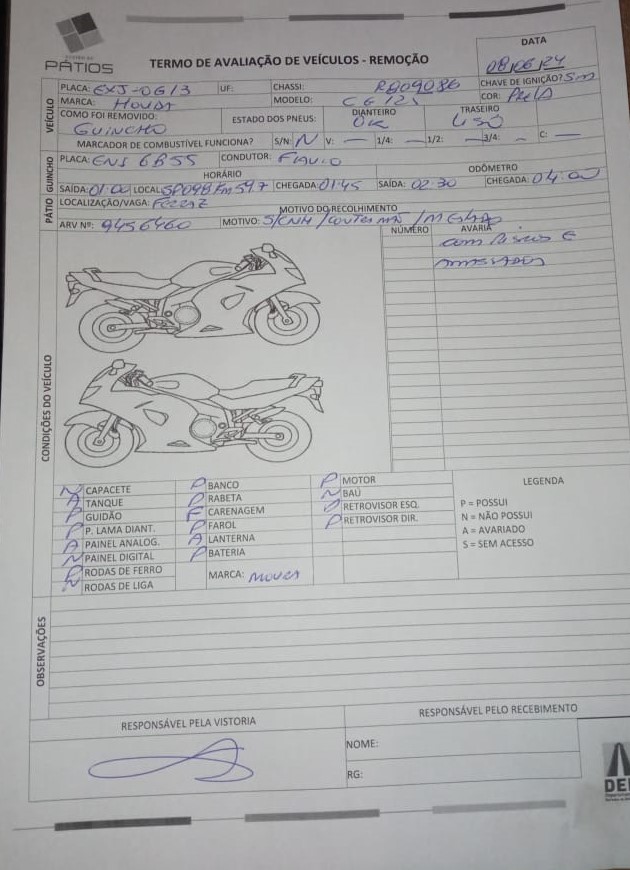 DATA
PÁTIOS
TERMO DE AVALIAÇÃO DE VEÍCULOS - REMOÇÃO
08/06/24
VEÍCULO
PLACA: EXJ-0G13 UF: CHASSI: R809086 CHAVE DE IGNIÇÃO? Sim
MARCA: HONDA MODELO: CG 125 COR: PRETA
COMO FOI REMOVIDO: GUINCHO ESTADO DOS PNEUS: DIANTEIRO OK TRASEIRO USO
MARCADOR DE COMBUSTÍVEL FUNCIONA? S/N: N V: — 1/4: — 1/2: — 3/4: — C: —
GUINCHO
PLACA: ENS 6B55 CONDUTOR: FLAVIO
HORÁRIO ODÔMETRO
SAÍDA: 01:00 LOCAL: SP098 Km 59.7 CHEGADA: 01:45 SAÍDA: 02:30 CHEGADA: 04:00
PÁTIO
LOCALIZAÇÃO/VAGA: FERRAZ MOTIVO DO RECOLHIMENTO
ARV Nº: 9456460 MOTIVO: S/CNH /
NÚMERO AVARIA
com Riscos E
AMASSADOS
CONDIÇÕES DO VEÍCULO
N CAPACETE P BANCO P MOTOR LEGENDA
A TANQUE P RABETA N BAÚ
P GUIDÃO F CARENAGEM P RETROVISOR ESQ. P = POSSUI
P P. LAMA DIANT. P FAROL P RETROVISOR DIR. N = NÃO POSSUI
A PAINEL ANALOG. A LANTERNA A = AVARIADO
N PAINEL DIGITAL P BATERIA S = SEM ACESSO
P RODAS DE FERRO MARCA: MOURA
N RODAS DE LIGA
OBSERVAÇÕES
RESPONSÁVEL PELA VISTORIA RESPONSÁVEL PELO RECEBIMENTO
NOME:
RG: